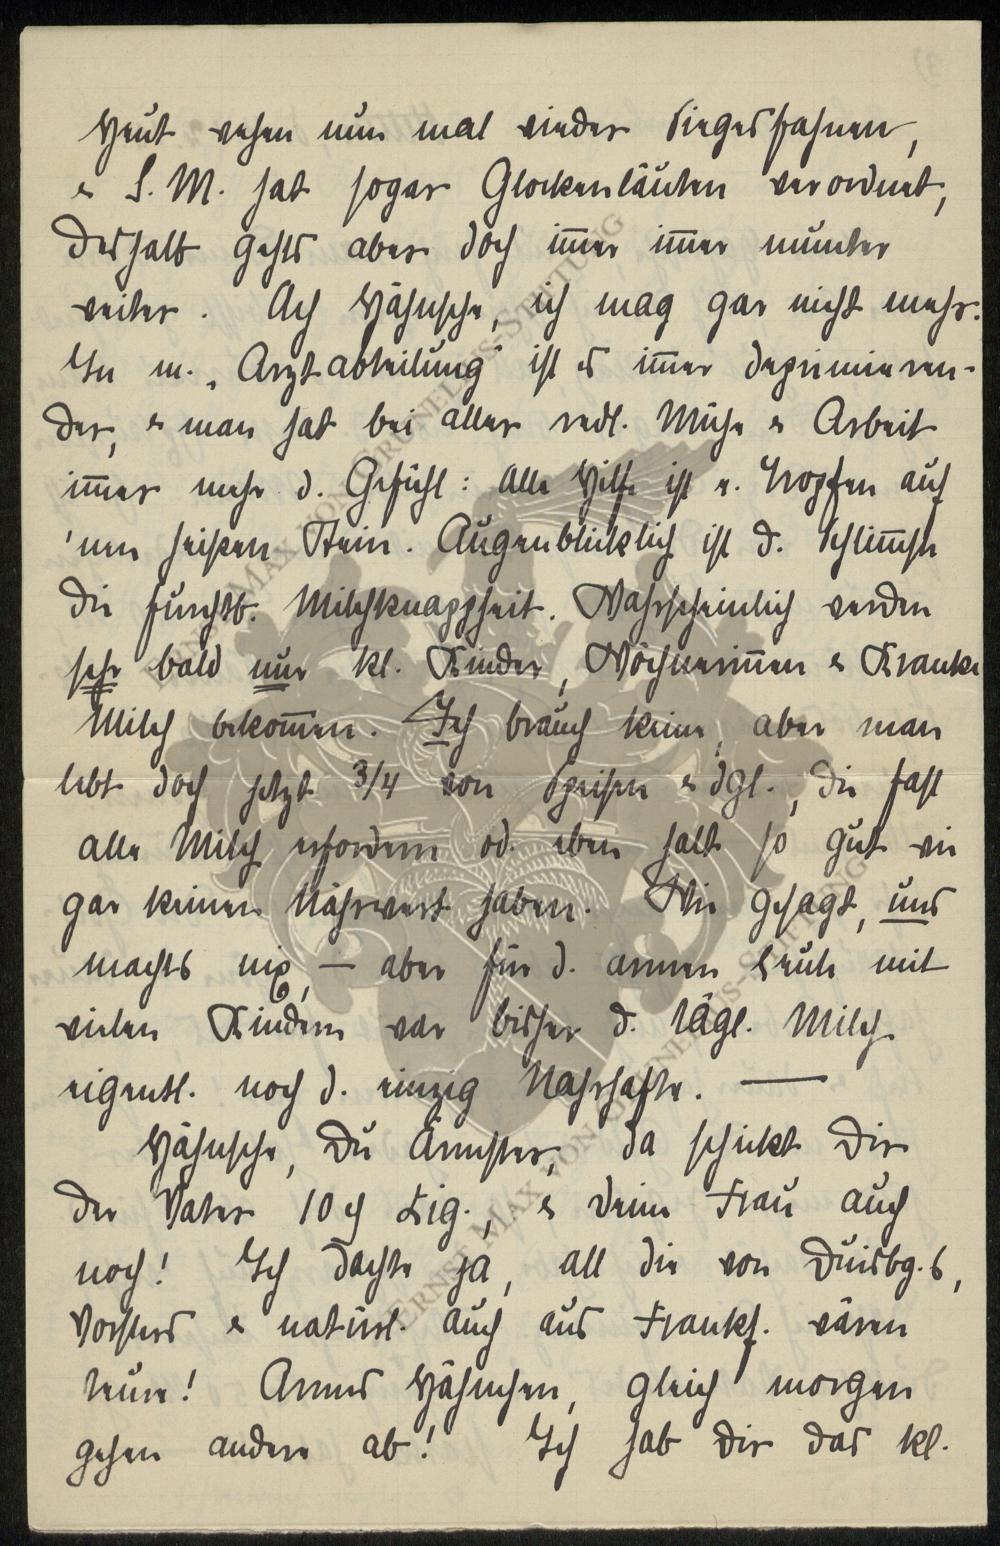 Heut wehen nun mal wieder Siegesfahnen,
& S. M. hat sogar Glockenläuten verordnet,
deshalb gehts aber doch im̅er im̅er munter
weiter. Ach Hähnsche, ich mag gar nicht mehr.
In m. „Arztabteilung" ist es im̅er deprimieren-
der, & man hat bei aller redl. Mühe & Arbeit
im̅er mehr d. Gefühl: alle Hilfe ist e. Tropfen auf
'nen heißen Stein. Augenblicklich ist d. Schlim̅ste
die furchtb. Milchknappheit. Wahrscheinlich werden
sehr bald nur kl. Kinder, Wöchnerin̅en & Kranke
Milch bekom̅en. Ich brauch keine, aber man
lebt doch jetzt 3/4 von Speisen & dgl., die fast
alle Milch erfordern od. eben halt so gut wie
gar keinen Nährwert haben. Wie gesagt, uns
machts nix, — aber für d. armen Leute mit
vielen Kindern war bisher d. tägl. Milch
eigentl. noch d. einzig Nahrhafte. —
Hähnsche, Du Ärmster, da schickt Dir
der Vater 10 Zig., & Deine Frau auch
noch! Ich dachte ja, all die von Duisbg.,
Vorsters & natürl. auch aus Frankf. wären
teure! Armes Hähnchen, gleich morgen
gehen andere ab! Ich hab Dir das kl.
ERNST MAX VON GRUNELIUS-STIFTUNG
ERNST MAX VON GRUNELIUS-STIFTUNG